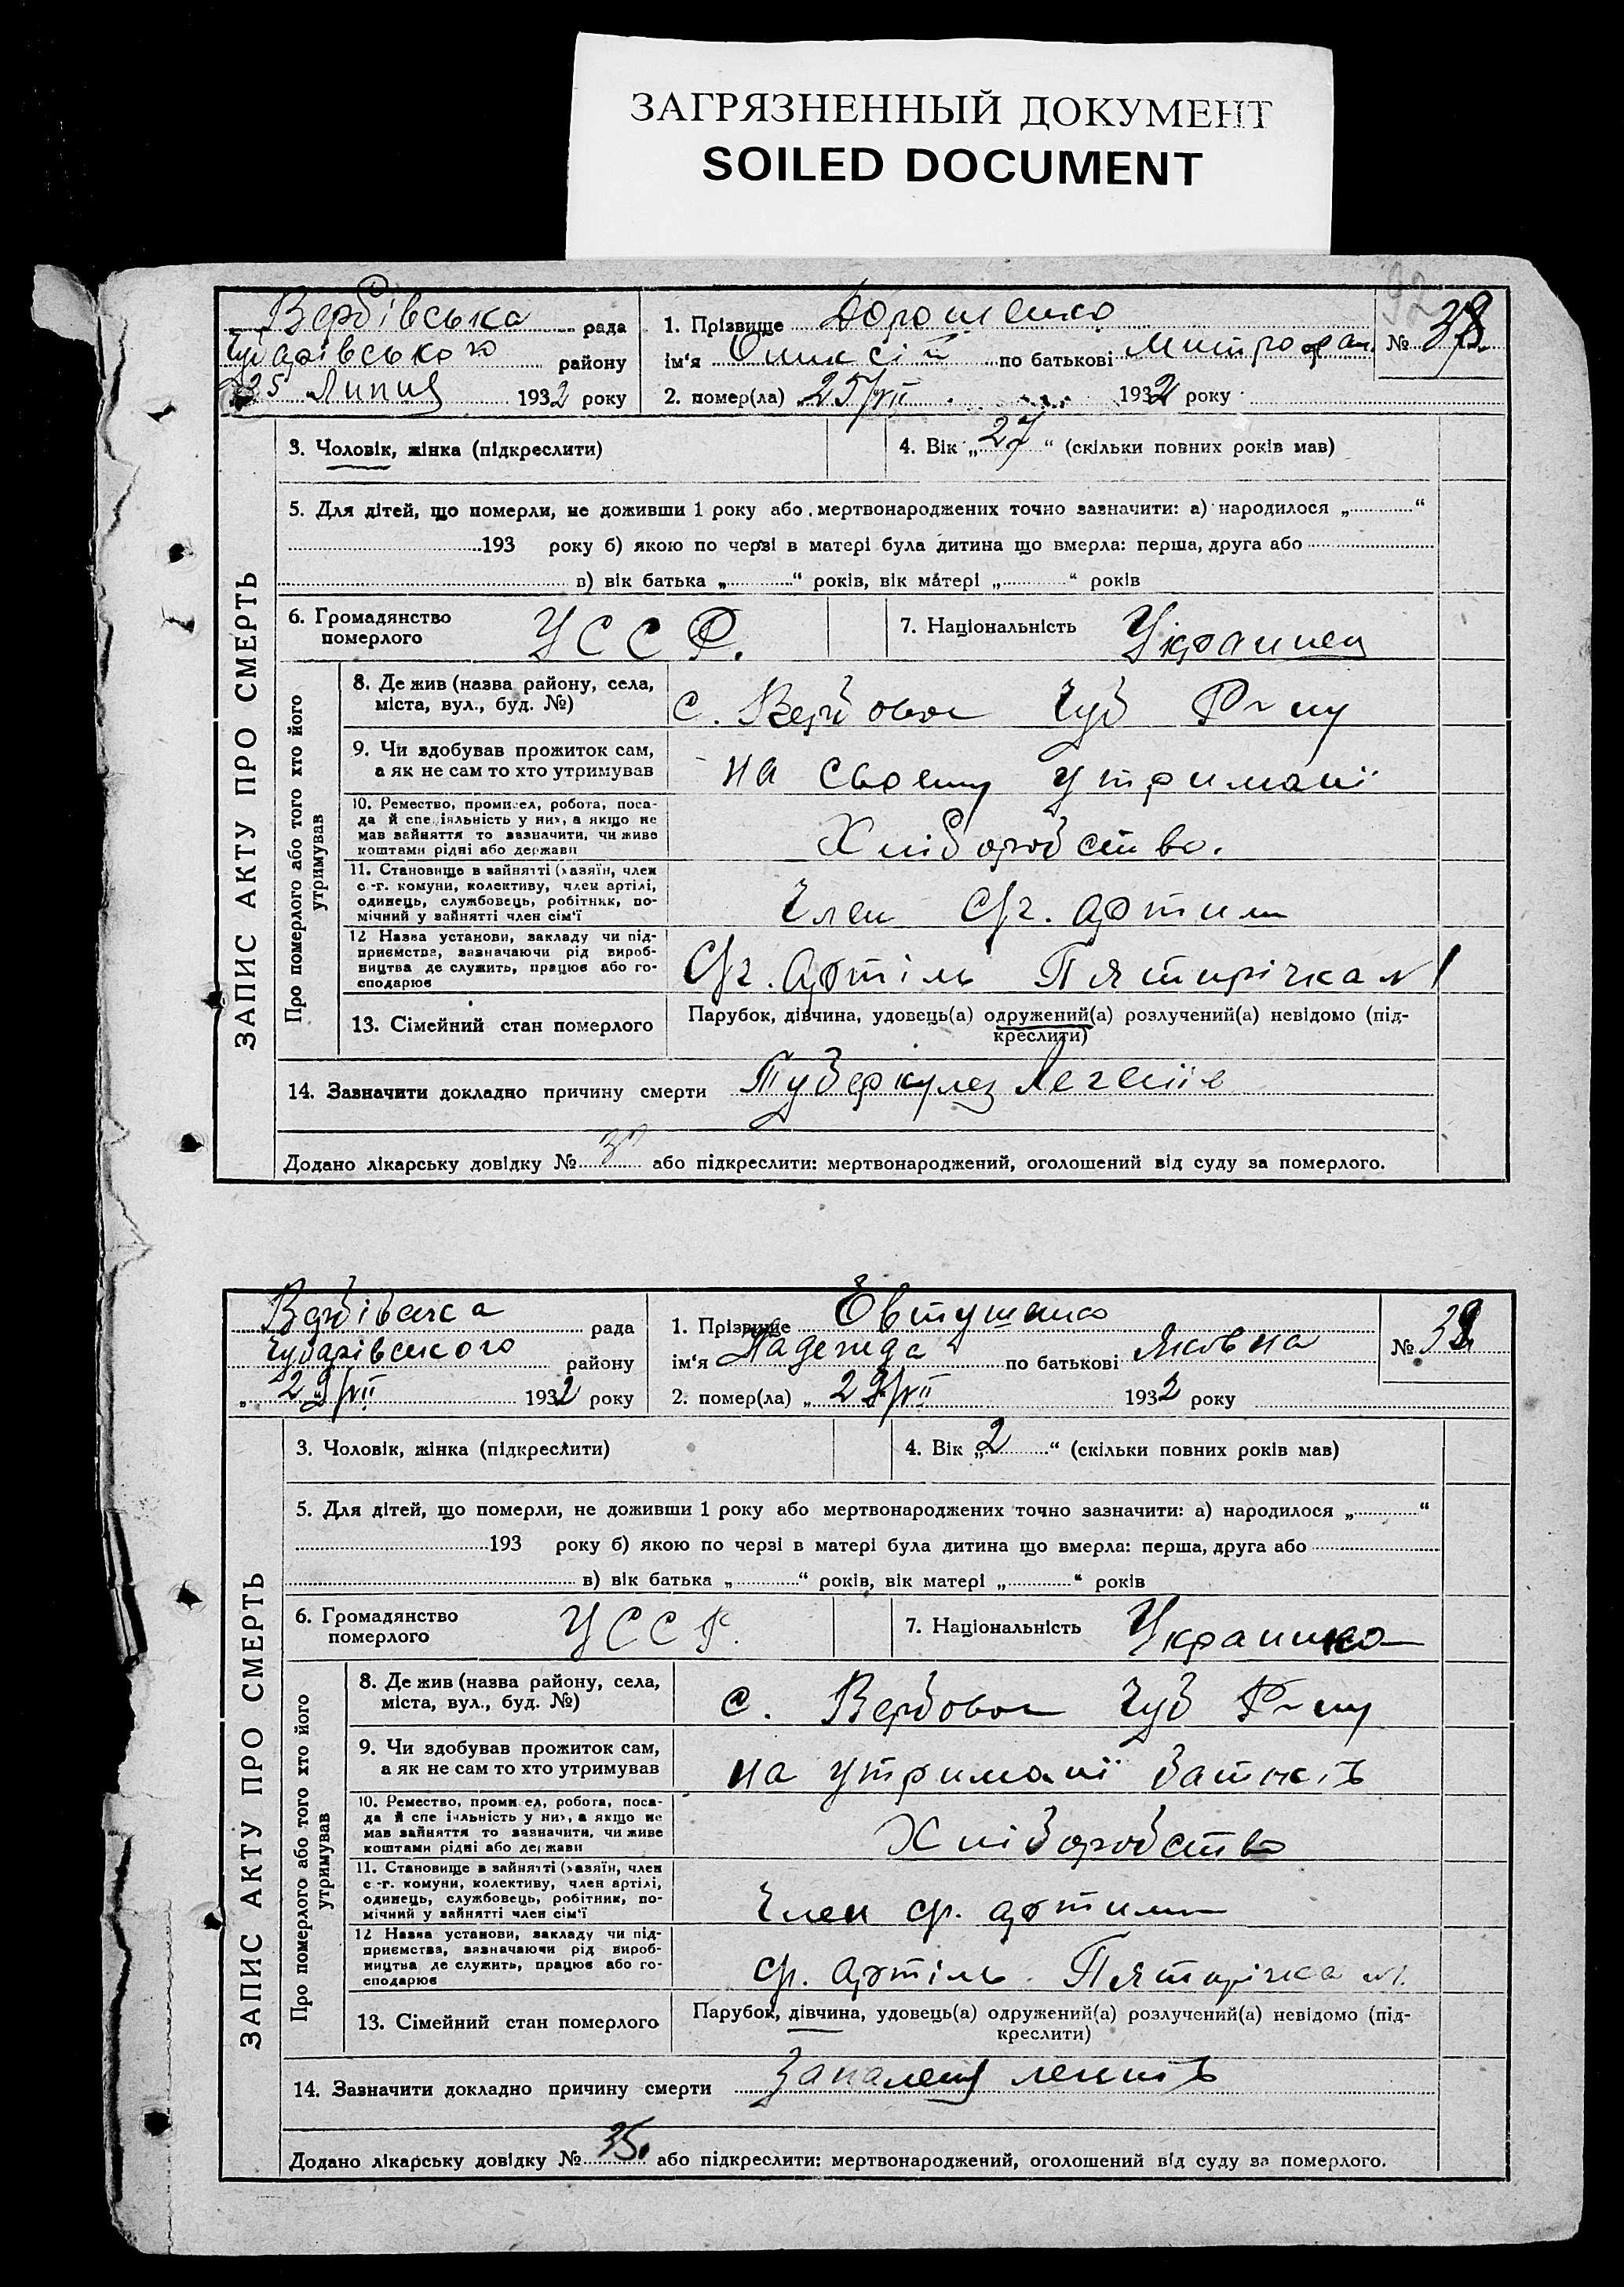 ЗАГРЯЗНЕННЫЙ ДОКУМЕНТ
SOILED DOCUMENT
Вербівська рада
Чубарівського району
25 Липця 1932 року
1. Прізвище Дорошенко
ім'я по батькові Митрофан.
2. помер(ла) „25/VII 1932 року
№ 38
ЗАПИС АКТУ ПРО СМЕРТЬ
3. Чоловік, жінка (підкреслити)
4. Вік „27“ (скільки повних років мав)
5. Для дітей, що померли, не доживши 1 року або мертвонароджених точно зазначити: а) народилося „ “
193 року б) якою по черзі в матері була дитина що вмерла: перша, друга або
в) вік батька „ “ років, вік матері „ “ років
6. Громадянство померлого УССР.
7. Національність Украинец
Про померлого або того хто його утримував
8. Де жив (назва району, села,
міста, вул., буд. №)
с. Вербовое Чуб Р-ну
9. Чи здобував прожиток сам,
а як не сам то хто утримував
на своему утримані
10. Ремество, промисел, робота, поса-
да й спеціяльність у них, а якщо не
мав зайняття то зазначити, чи живе
коштами рідні або держави
Хліборобство.
11. Становище в зайнятті (хазяїн, член
с.-г. комуни, колективу, член артілі,
одинець, службовець, робітник, по-
мічний у зайнятті член сім'ї
Член артили
12 Назва установи, закладу чи під-
приємства, зазначаючи рід вироб-
ництва де служить, працює або го-
сподарює
артіль Пятирічка №1
13. Сімейний стан померлого
Парубок, дівчина, удовець(а) одружений(а) розлучений(а) невідомо (під-
креслити)
14. Зазначити докладно причину смерти Туберкулез легенів
Додано лікарську довідку № або підкреслити: мертвонароджений, оголошений від суду за померлого.
Вербівська рада
Чубарівського району
„29/VII 1932 року
1. Прізвище Евтушенко
ім'я Надежда по батькові Яковна
2. помер(ла) „29/VII 1932 року
№ 39
ЗАПИС АКТУ ПРО СМЕРТЬ
3. Чоловік, жінка (підкреслити)
4. Вік „2“ (скільки повних років мав)
5. Для дітей, що померли, не доживши 1 року або мертвонароджених точно зазначити: а) народилося „ “
193 року б) якою по черзі в матері була дитина що вмерла: перша, друга або
в) вік батька „ “ років, вік матері „ “ років
6. Громадянство померлого УССР.
7. Національність Украинка
Про померлого або того хто його утримував
8. Де жив (назва району, села,
міста, вул., буд. №)
с. Вербовое Чуб Р-ну
9. Чи здобував прожиток сам,
а як не сам то хто утримував
на утримані батьків
10. Ремество, промисел, робота, поса-
да й спеціяльність у них, а якщо не
мав зайняття то зазначити, чи живе
коштами рідні або держави
Хліборобство
11. Становище в зайнятті (хазяїн, член
с.-г. комуни, колективу, член артілі,
одинець, службовець, робітник, по-
мічний у зайнятті член сім'ї
Член артили
12 Назва установи, закладу чи під-
приємства, зазначаючи рід вироб-
ництва де служить, працює або го-
сподарює
артіль Пятирічка №1.
13. Сімейний стан померлого
Парубок, дівчина, удовець(а) одружений(а) розлучений(а) невідомо (під-
креслити)
14. Зазначити докладно причину смерти Запалення
Додано лікарську довідку № 35. або підкреслити: мертвонароджений, оголошений від суду за померлого.